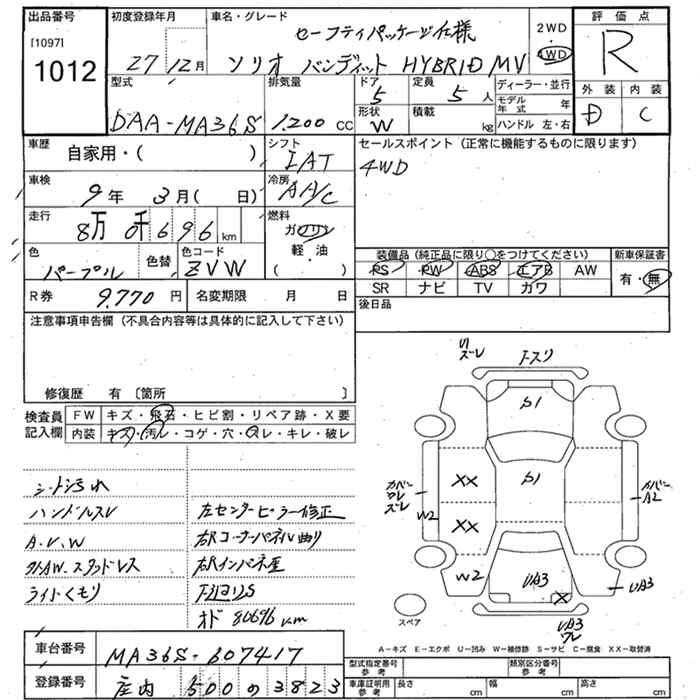 出品番号 初度登録年月 車名・グレード 評価点
[1097] セーフティパッケージ仕様 2WD
1012 27年12月 ソリオ バンディット HYBRID MV 4WD R
型式 排気量 ドア 定員 ディーラー・並行 外装 内装
5 5人 モデル年式 年 D C
DAA-MA36S 1.200cc 形状 W 積載 kg ハンドル 左・右
車歴 自家用・( ) シフト IAT セールスポイント (正常に機能するものに限ります)
車検 9年 3月( 日) 冷房 AA/C 4WD
走行 8万 0千 6 9 6 km 燃料 ガソリン
軽・油
( )
色 パープル 色替 色コード ZVW 装備品 (純正品に限り○をつけてください) 新車保証書
PS PW ABS エアB AW 有・無
R券 9.770円 名変期限 月 日 SR ナビ TV カワ
注意事項申告欄 (不具合内容等は具体的に記入して下さい) 後日品
修復歴 有 [箇所 ]
検査員記入欄 FW キズ・飛石・ヒビ割・リペア跡・X要
内装 キズ・汚レ・コゲ・穴・スレ・キレ・破レ
シート汚れ
ハンドルスレ 左センターピラー修正
A.V.W 右Rコーナーパネル曲り
外AW.スタッドレス 右Rインパネ歪
ライトくもり
オド 80696km
リ
ズレ
S1
S1
XX
XX
W2
W2
カバー
ワレ
ズレ
カバー
A2
UA3
UA3
X
UA3
ワレ
スペア
A-キズ E-エクボ U-凹み W-補修跡 S-サビ C-腐食 XX-取替済
車台番号 MA36S-607417
登録番号 庄内 500 の 3823
型式指定番号 参考 類別区分番号 参考
車庫証明用 参考 長さ cm 幅 cm 高さ cm